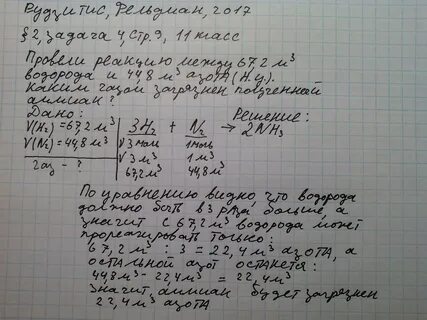 Рудзитис, Фельдман, 2017
§2, задача 4, стр. 9, 11 класс
Провели реакцию между 67,2 м³
водорода и 44,8 м³ азота (н.у.).
Каким газом загрязнен полученный
аммиак?
Дано: Решение:
V(H₂) = 67,2 м³ 3H₂ + N₂ → 2NH₃
V(N₂) = 44,8 м³ ν 3 моль 1 моль
газ - ? V 3 м³ 1 м³
67,2 44,8 м³
По уравнению видно, что водорода
должно быть в 3 раза больше, а
значит с 67,2 м³ водорода может
прореагировать только:
67,2 м³ : 3 = 22,4 м³ азота, а
остальной азот останется:
44,8 м³ - 22,4 м³ = 22,4 м³
Значит, аммиак будет загрязнен
22,4 м³ азота